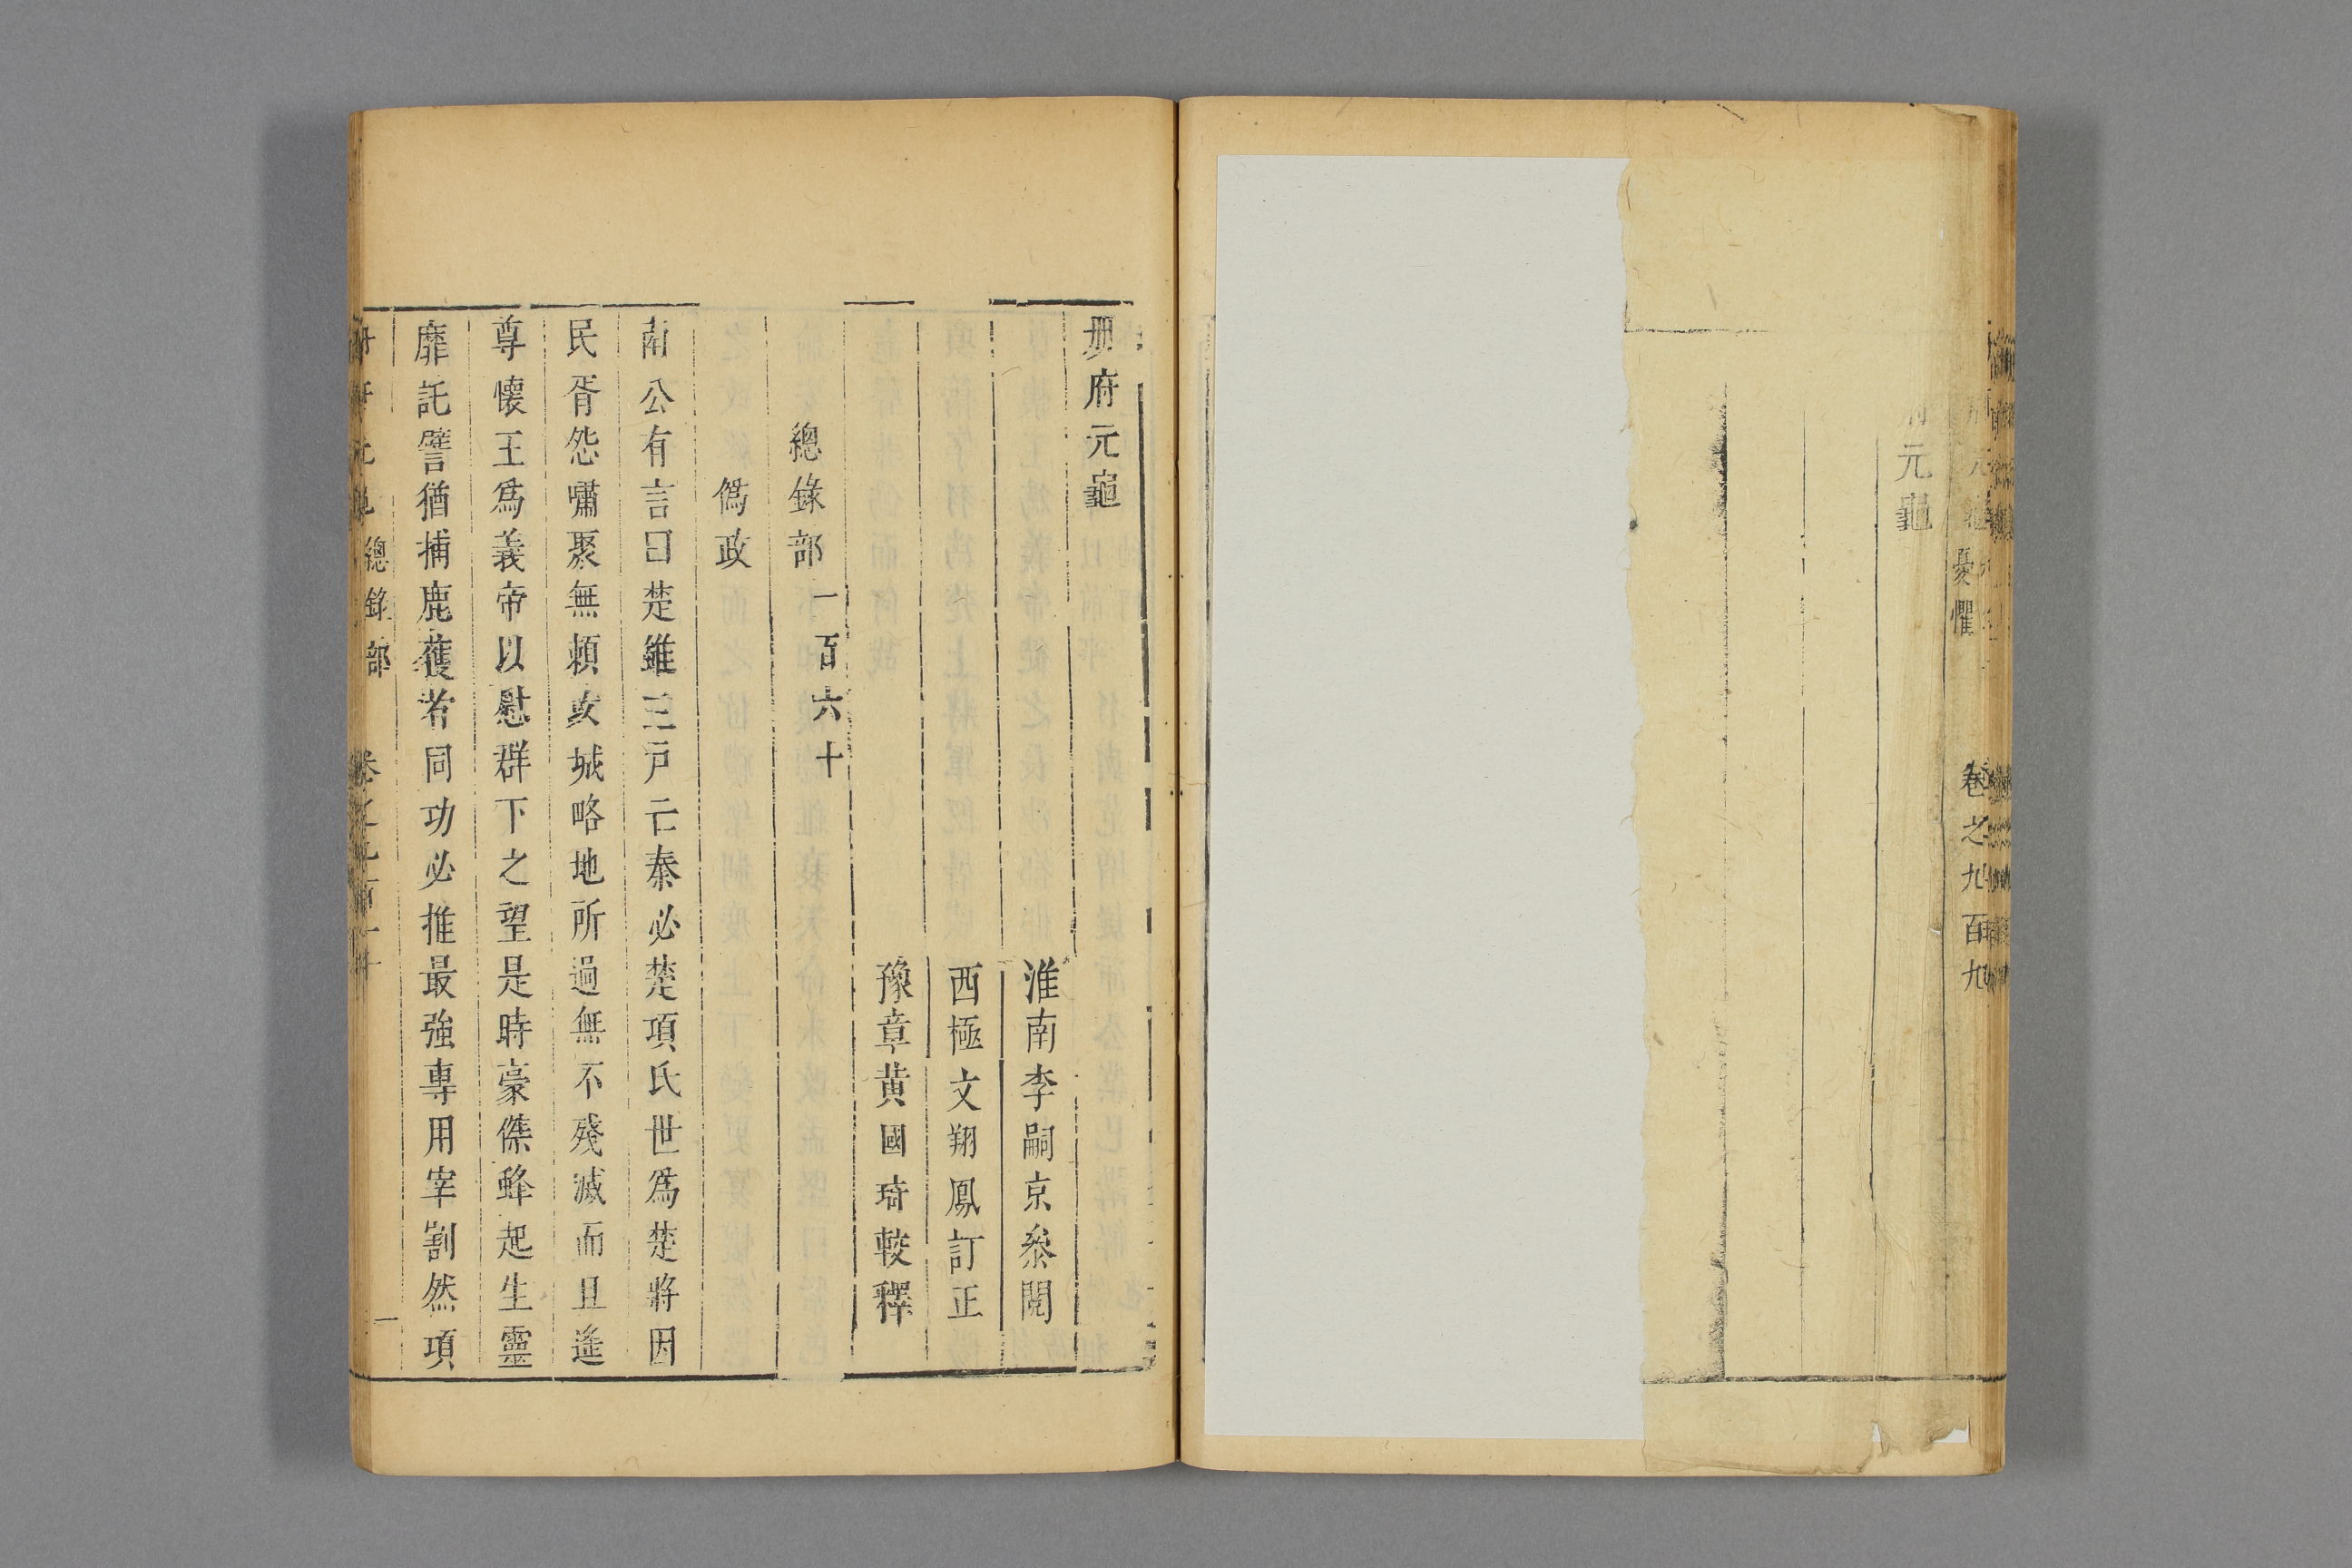 元龜
憂懼
卷之九百九
册府元龜
淮南李嗣京叅閱
西極文翔鳳訂正
豫章黃國琦較釋
總錄部一百六十
僞政
南公有言曰楚雖三戸亡秦必楚項氏世爲楚將因
民胥怨嘯聚無頼攻城略地所過無不殘滅而且遙
尊懐王爲義帝以慰群下之望是時豪傑蜂起生靈
靡託譬猶捕鹿蒦若同功必推最強專用宰割然項
總錄部
一